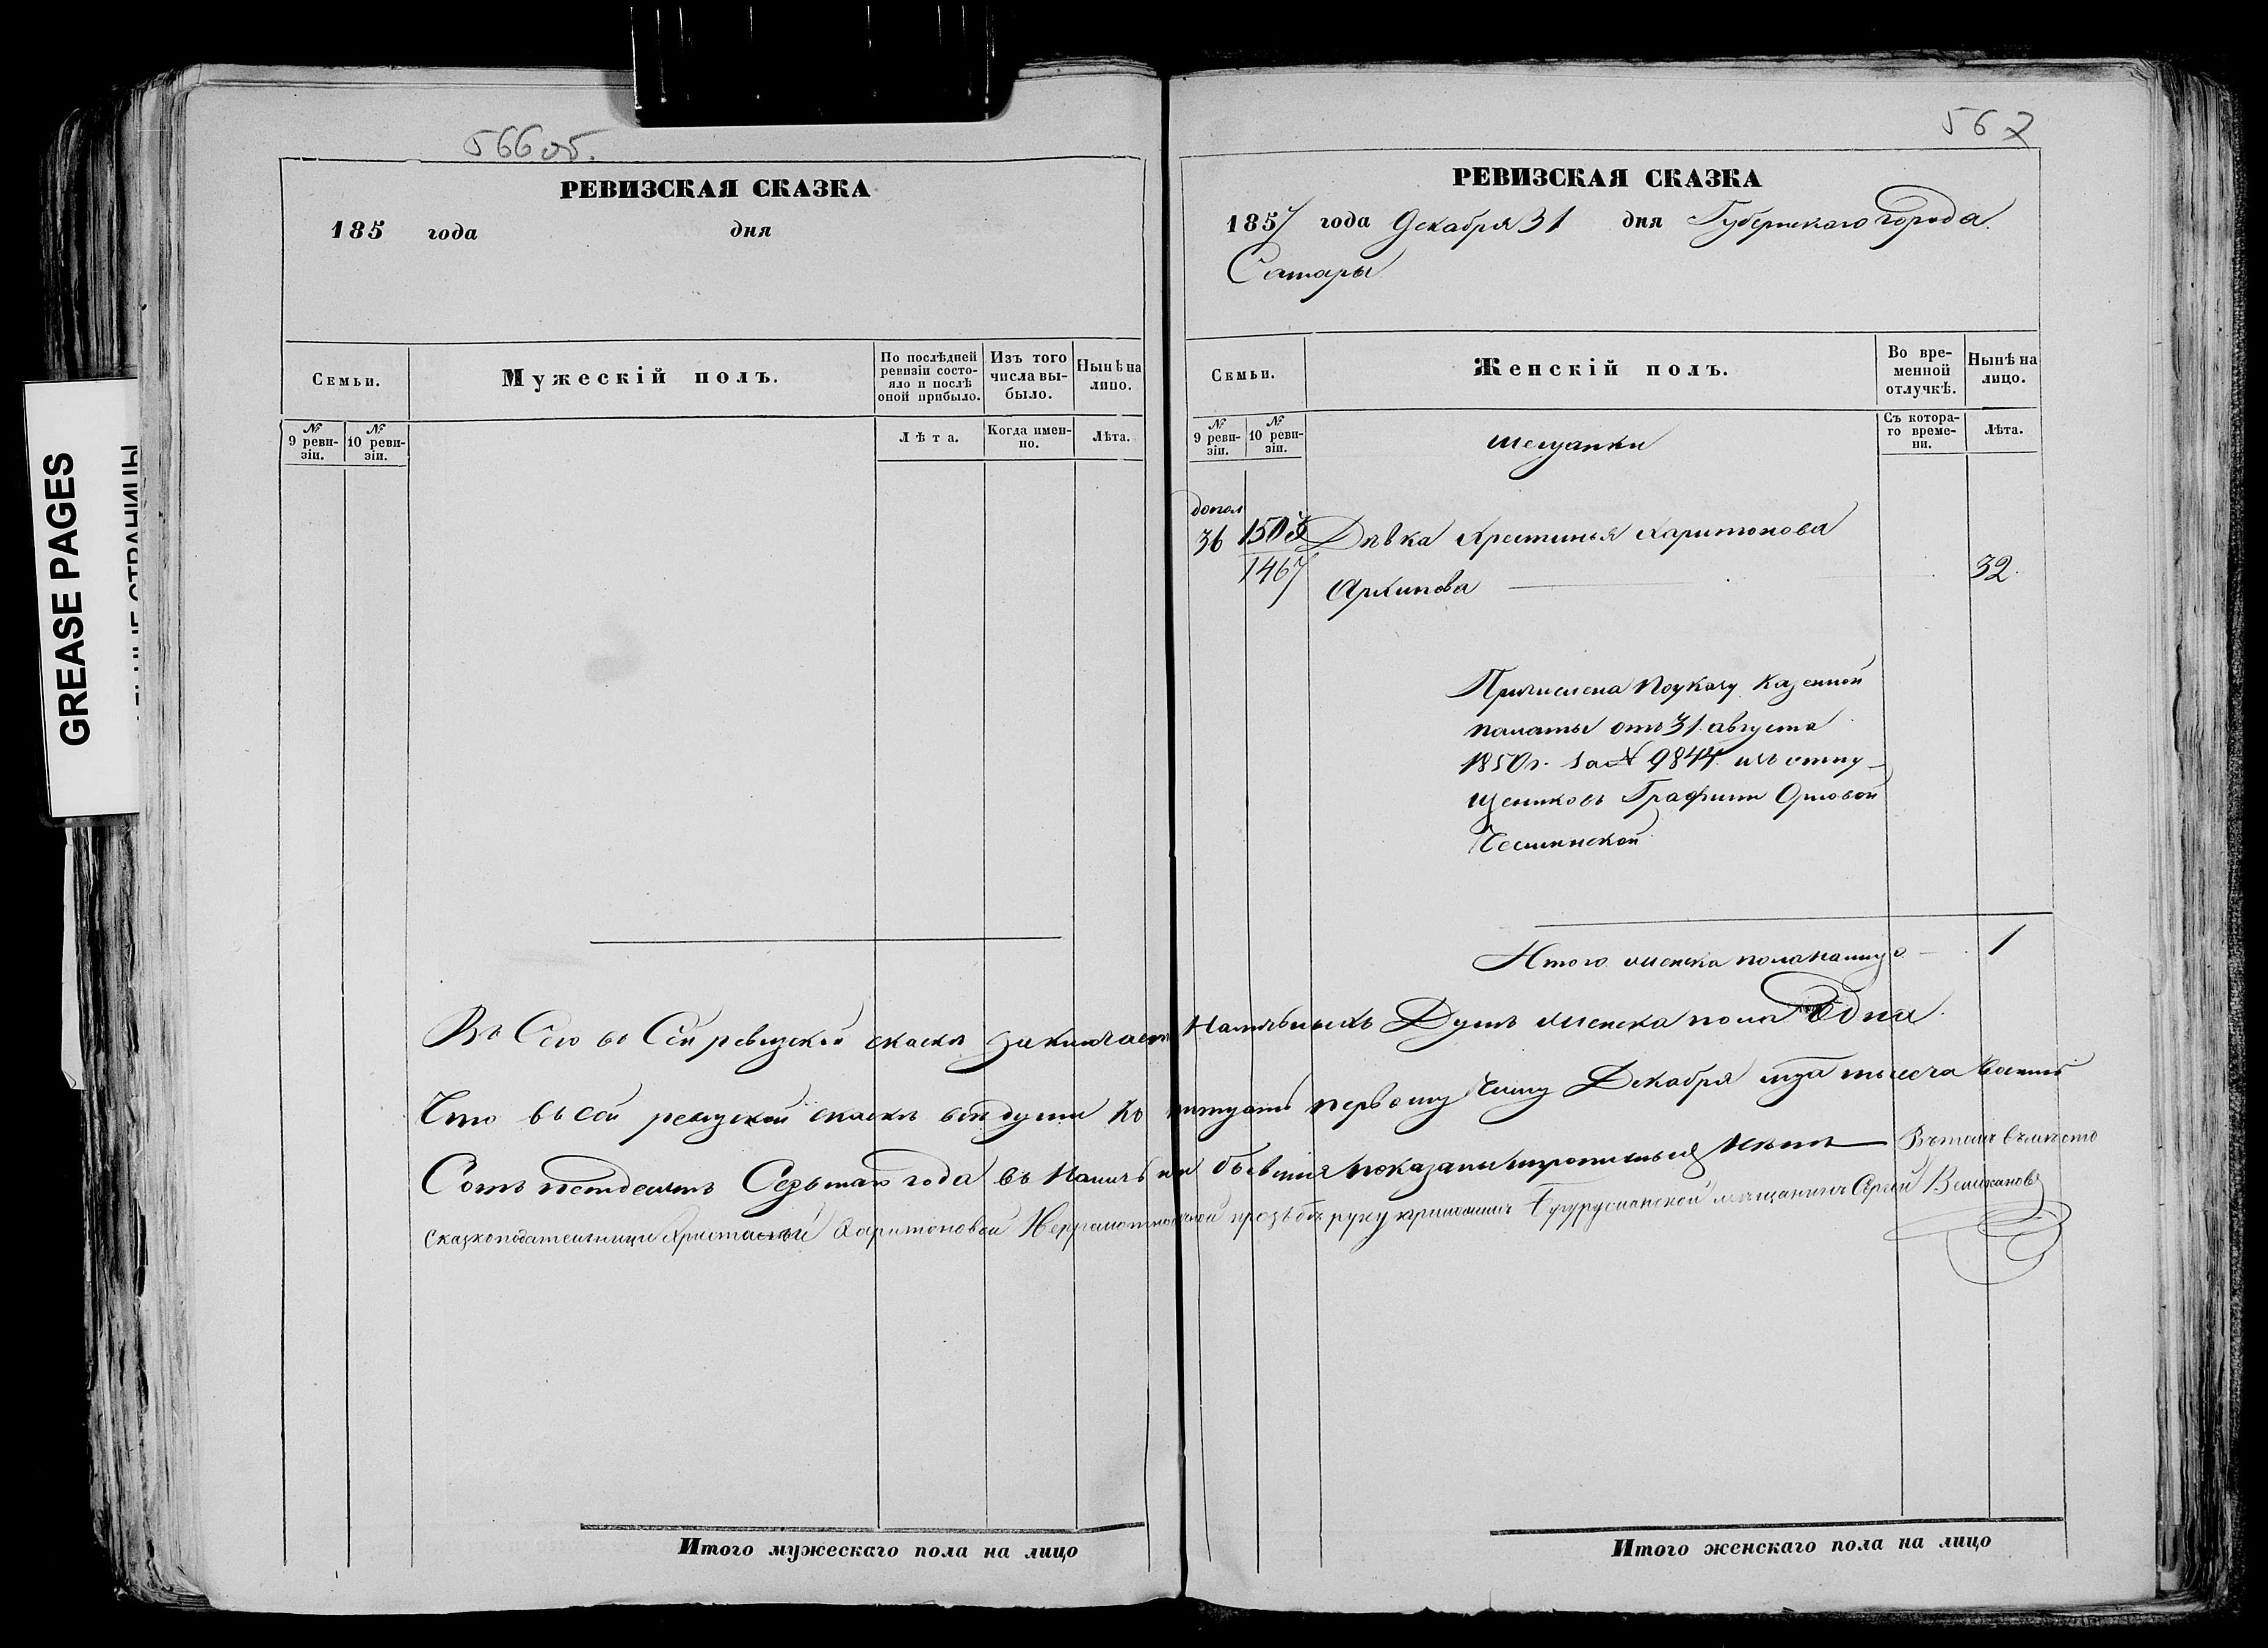 566 об.
РЕВИЗСКАЯ СКАЗКА
185 года дня
Семьи.
Мужескій полъ.
По послѣдней ревизіи состояло и послѣ оной прибыло.
Изъ того числа выбыло.
Нынѣ на лицо.
№ 9 ревизіи.
№ 10 ревизіи.
Лѣта.
Когда именно.
Лѣта.
Итого мужескаго пола на лицо
567
РЕВИЗСКАЯ СКАЗКА
1857 года Декабря 31 дня Губернскаго города
Самары
Семьи.
Женскій полъ.
Во временной отлучкѣ.
Нынѣ на лицо.
№ 9 ревизіи.
№ 10 ревизіи.
мещанки
Съ котораго времени.
Лѣта.
допол
36 1503 Дѣвка Хрестинья Харитонова
1467 Архипова 32.
Причислена по указу Казенной
палаты отъ 31 августа
1850 г. за № 9844 изъ отпу-
щениковъ Графини Орловой
Чесминской
Итого женска пола налицо 1
Въ Сею во Сей ревизской скаскѣ заключает Наличныхъ Душъ женска пола Одна.
Что въ сей ревизской скаскѣ всѣ души по тритцать первому Числу Декабря мца тысеча восемь
Сотъ петдесятъ Седьмаго года въ Наличъ ни бывшия показаны и прописныхъ Нѣтъ Въ томъ въмѣсто
сказкоподателницы Христиньи Харитоновой Неграмотной прозьбѣ руку приложилъ Бугурусланской мѣщанинъ Сергей Великановъ
Итого женскаго пола на лицо
GREASE PAGES